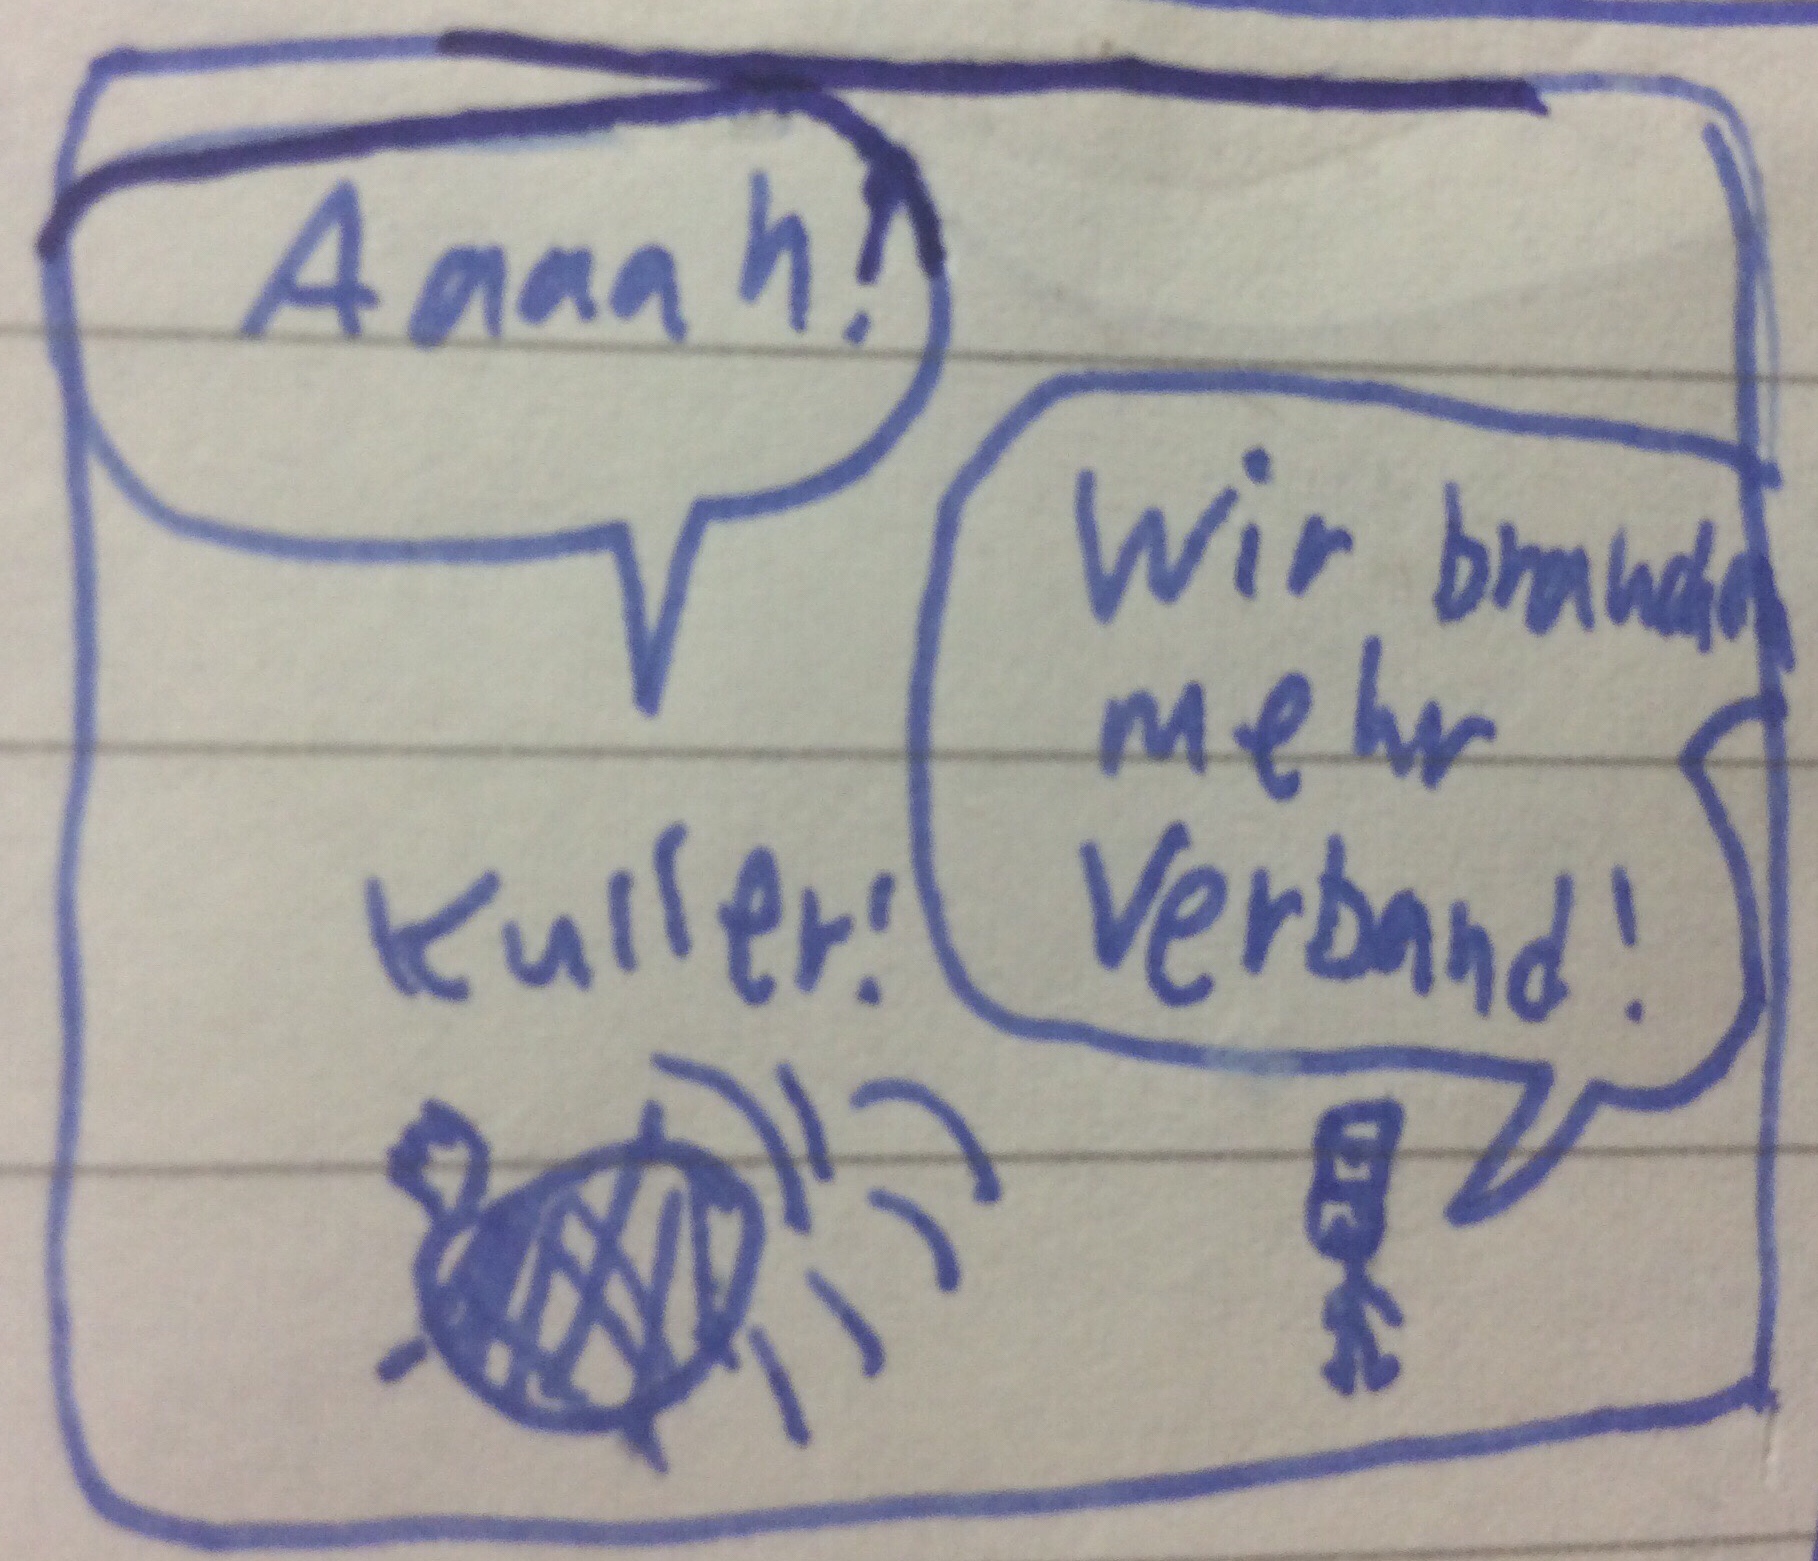 Aaaah!
Wir brauchen
mehr
Verband!
Kuller!